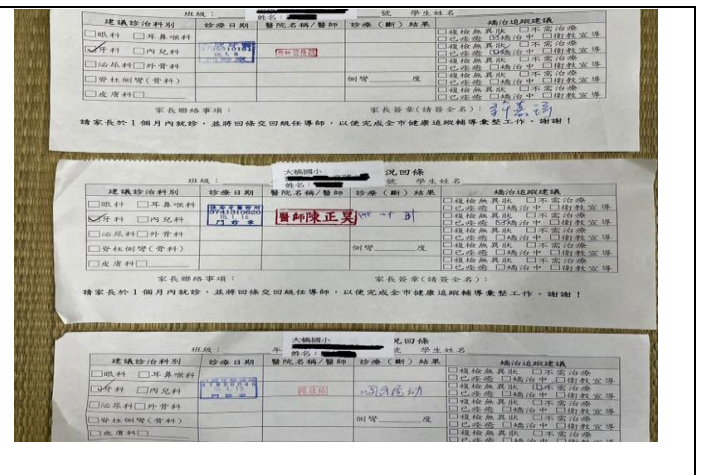 班級： 號 學生姓名
姓名：
建議診治科別 診療日期 醫院名稱/醫師 診療（斷）結果 矯治追蹤建議
□眼科 □耳鼻喉科 □複檢無異狀 □不需治療
□已痊癒 ☑矯治中 □衛教宣導
☑牙科 □內兒科 □複檢無異狀 □不需治療
□已痊癒 □矯治中 □衛教宣導
□泌尿科 □外骨科 □複檢無異狀 □不需治療
□已痊癒 □矯治中 □衛教宣導
□脊柱側彎(骨科) 側彎 度 □複檢無異狀 □不需治療
□已痊癒 □矯治中 □衛教宣導
□皮膚科□ □複檢無異狀 □不需治療
□已痊癒 □矯治中 □衛教宣導
家長聯絡事項： 家長簽章(請簽全名)：
請家長於1個月內就診，並將回條交回級任導師，以便完成全市健康追蹤輔導彙整工作。謝謝！
大橋國小 況回條
班級： 姓名： 號 學生姓名
建議診治科別 診療日期 醫院名稱/醫師 診療（斷）結果 矯治追蹤建議
□眼科 □耳鼻喉科 □複檢無異狀 □不需治療
□已痊癒 □矯治中 □衛教宣導
☑牙科 □內兒科 3741310620 門診章 醫師陳正昊 □複檢無異狀 □不需治療
□已痊癒 ☑矯治中 □衛教宣導
□泌尿科 □外骨科 □複檢無異狀 □不需治療
□已痊癒 □矯治中 □衛教宣導
□脊柱側彎(骨科) 側彎 度 □複檢無異狀 □不需治療
□已痊癒 □矯治中 □衛教宣導
□皮膚科□ □複檢無異狀 □不需治療
□已痊癒 □矯治中 □衛教宣導
家長聯絡事項： 家長簽章(請簽全名)：
請家長於1個月內就診，並將回條交回級任導師，以便完成全市健康追蹤輔導彙整工作。謝謝！
大橋國小 況回條
班級： 年 姓名： 號 學生姓名
建議診治科別 診療日期 醫院名稱/醫師 診療（斷）結果 矯治追蹤建議
□眼科 □耳鼻喉科 □複檢無異狀 □不需治療
□已痊癒 □矯治中 □衛教宣導
☑牙科 □內兒科 門診章 □複檢無異狀 □不需治療
□已痊癒 □矯治中 □衛教宣導
□泌尿科 □外骨科 □複檢無異狀 □不需治療
□已痊癒 □矯治中 □衛教宣導
□脊柱側彎(骨科) 側彎 度 □複檢無異狀 □不需治療
□已痊癒 □矯治中 □衛教宣導
□皮膚科□ □複檢無異狀 □不需治療